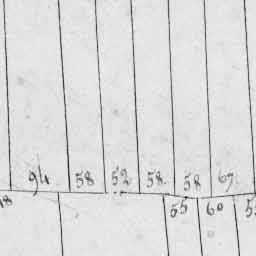 94 58 52 58 58 67
55 60